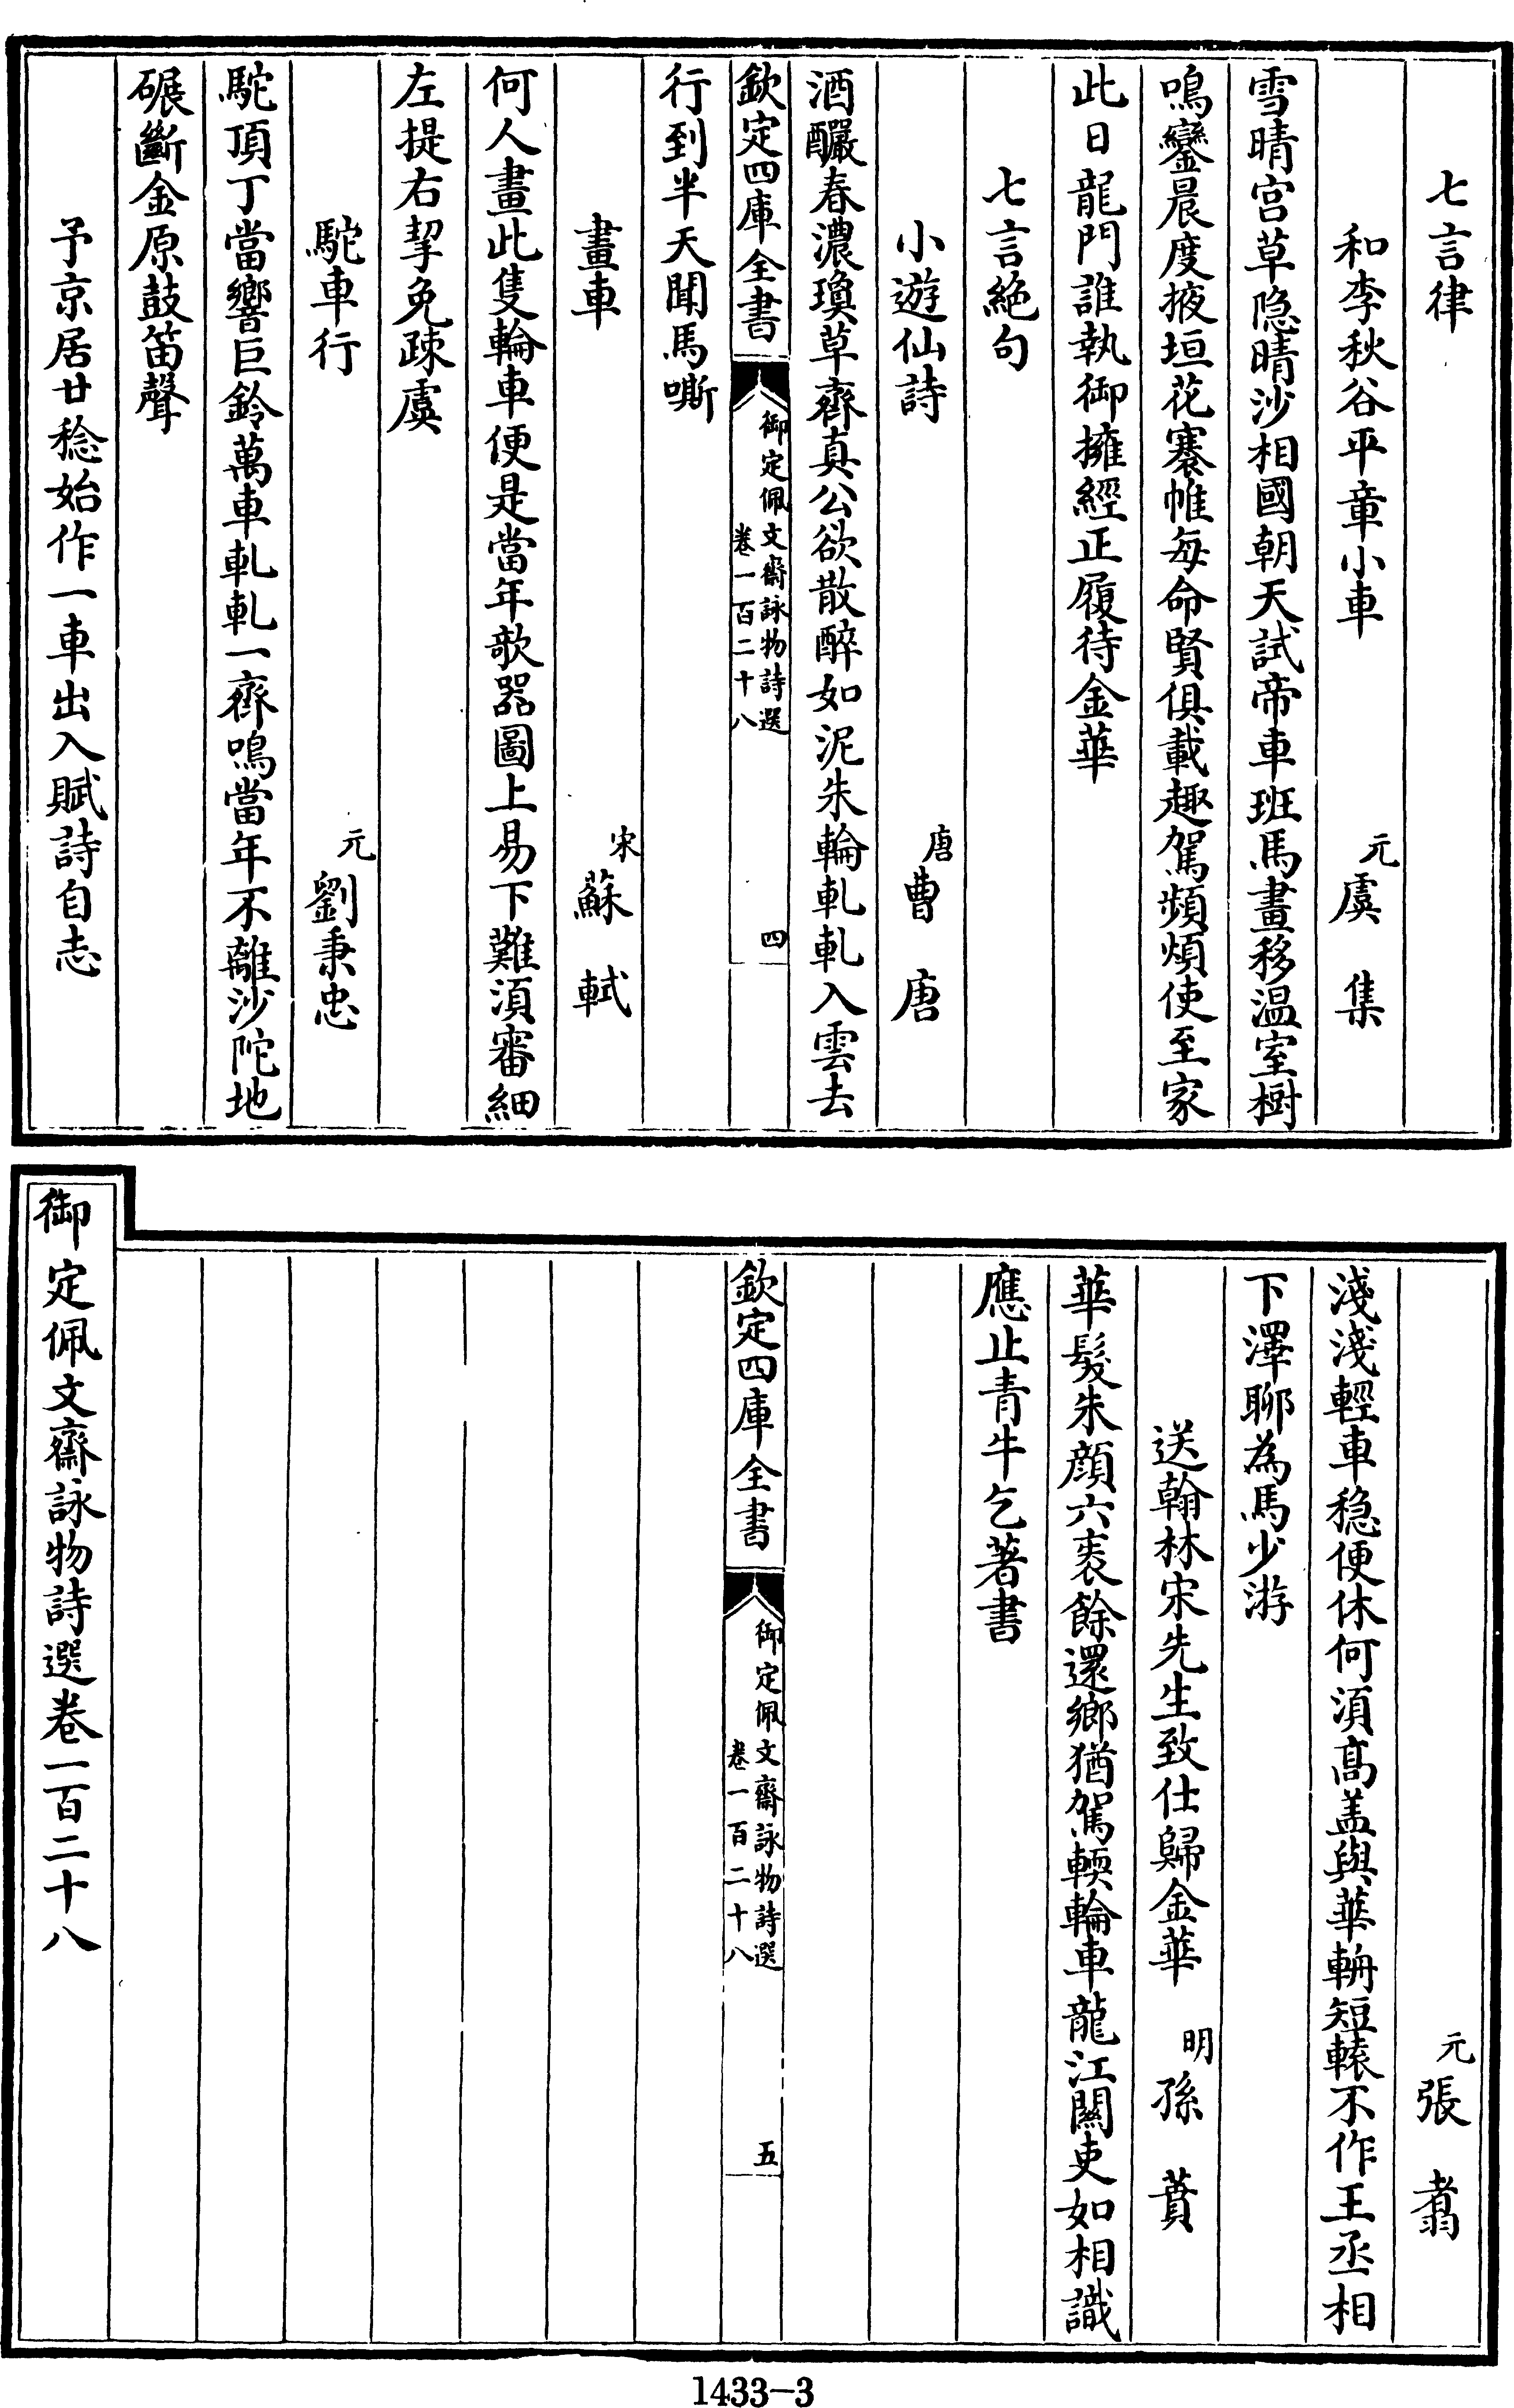 七言律
和李秋谷平章小車　元虞　集
雪晴宫草隐晴沙相國朝天試帝車班馬晝移温室樹
鳴鑾晨度掖垣花褰帷每命賢俱載趣駕頻煩使至家
此日龍門誰執御擁經正履待金華
七言絶句
小遊仙詩　唐曹　唐
酒釅春濃瓊草齊真公欲散醉如泥朱輪軋軋入雲去
欽定四庫全書　御定佩文齋詠物詩選　卷一百二十八　四
行到半天聞馬嘶
畫車　宋蘇　軾
何人畫此隻輪車便是當年欹器圖上易下難須審細
左提右挈免疎虞
駝車行　元劉秉忠
駝頂丁當響巨鈴萬車軋軋一齊鳴當年不離沙陀地
碾斷金原鼓笛聲
予京居廿稔始作一車出入賦詩自志
元張　翥
淺淺輕車穏便休何須髙盖與華輈短轅不作王丞相
下澤聊為馬少游
送翰林宋先生致仕歸金華　明孫　蕡
華髮朱顔六袠餘還鄉猶駕輭輪車龍江闗吏如相識
應止青牛乞著書
欽定四庫全書　御定佩文齋詠物詩選　卷一百二十八　五
御定佩文齋詠物詩選卷一百二十八
1433-3